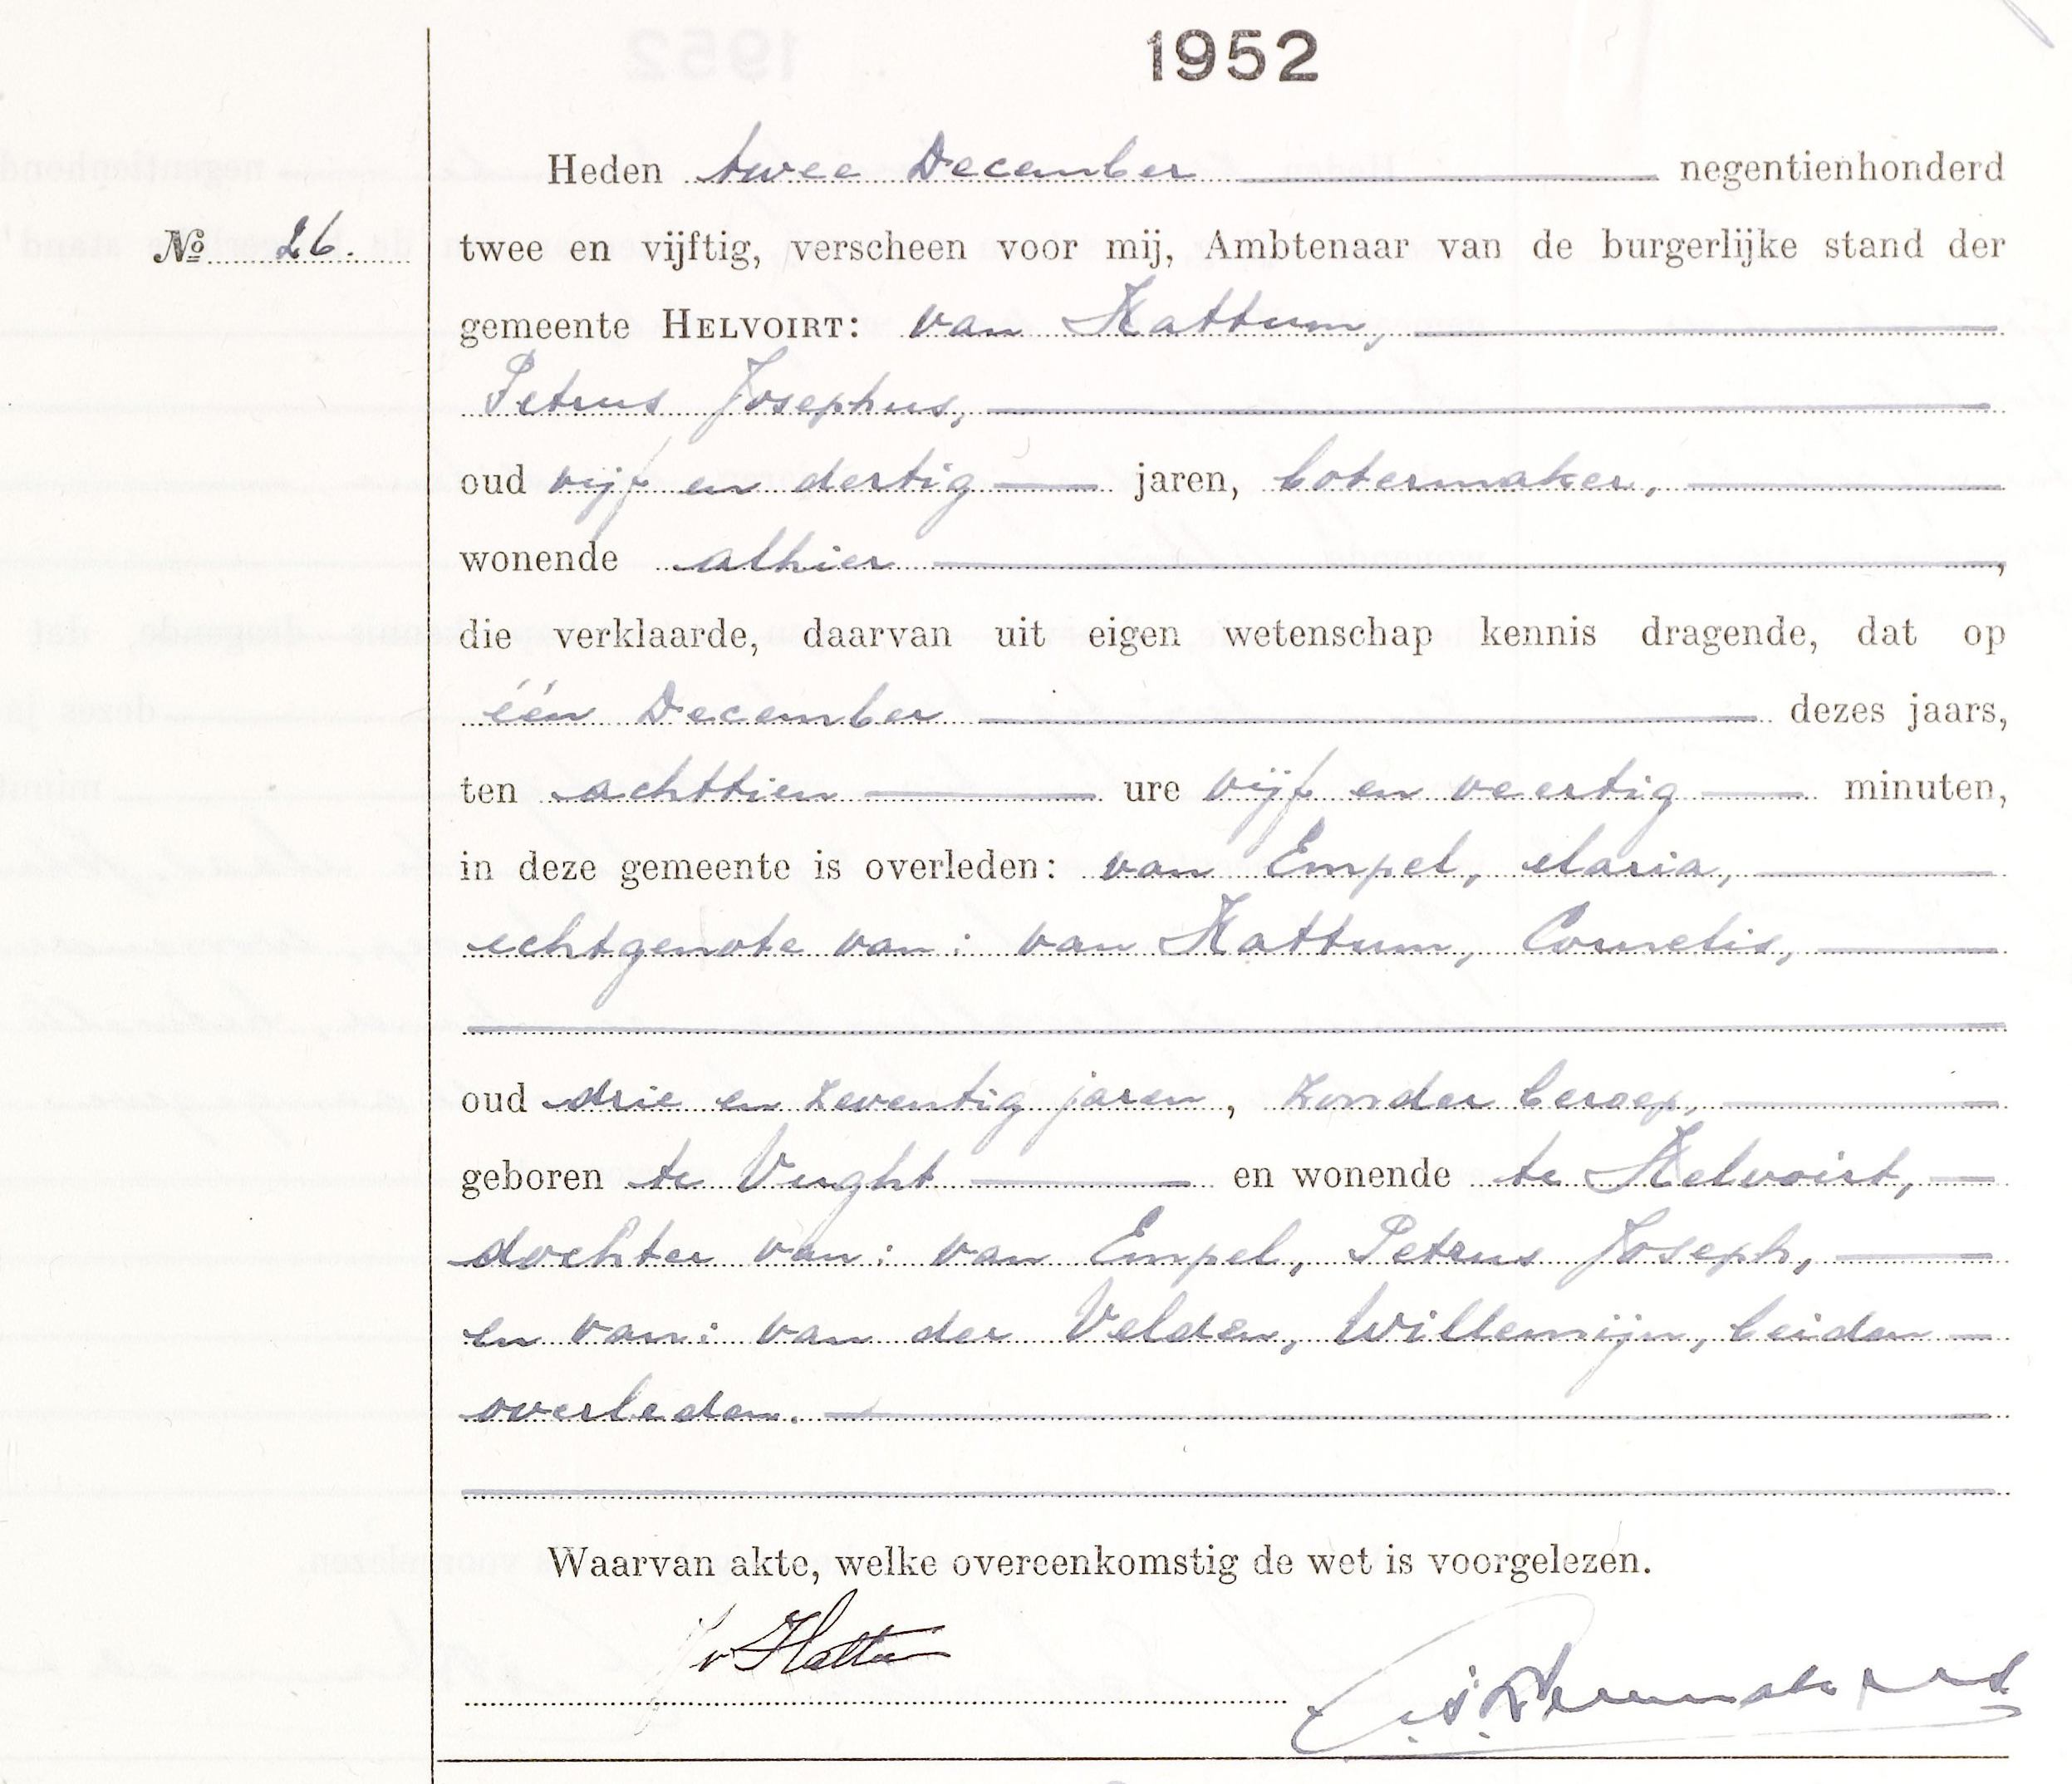 1952
Heden twee December negentienhonderd
№ 26. twee en vijftig, verscheen voor mij, Ambtenaar van de burgerlijke stand der
gemeente HELVOIRT: van Hattum,
Petrus Josephus,
oud vijf en dertig jaren, botermaker,
wonende alhier ,
die verklaarde, daarvan uit eigen wetenschap kennis dragende, dat op
één December dezes jaars,
ten achttien ure vijf en veertig minuten,
in deze gemeente is overleden: van Empel, Maria,
echtgenote van: van Hattum, Cornelis,
oud drie en zeventig jaren, zonder beroep,
geboren te Vught en wonende te Helvoirt,
dochter van: van Empel, Petrus Joseph,
en van: van der Velden, Willemijn, beiden
overleden.
Waarvan akte, welke overeenkomstig de wet is voorgelezen.